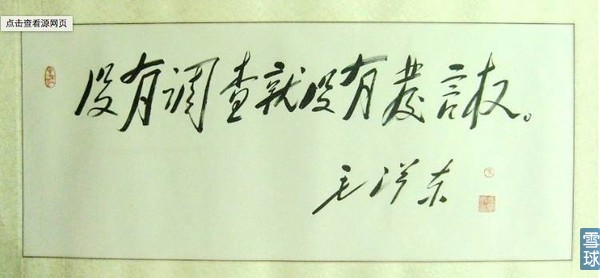 点击查看源网页
没有调查就没有發言权。
毛泽东
雪球